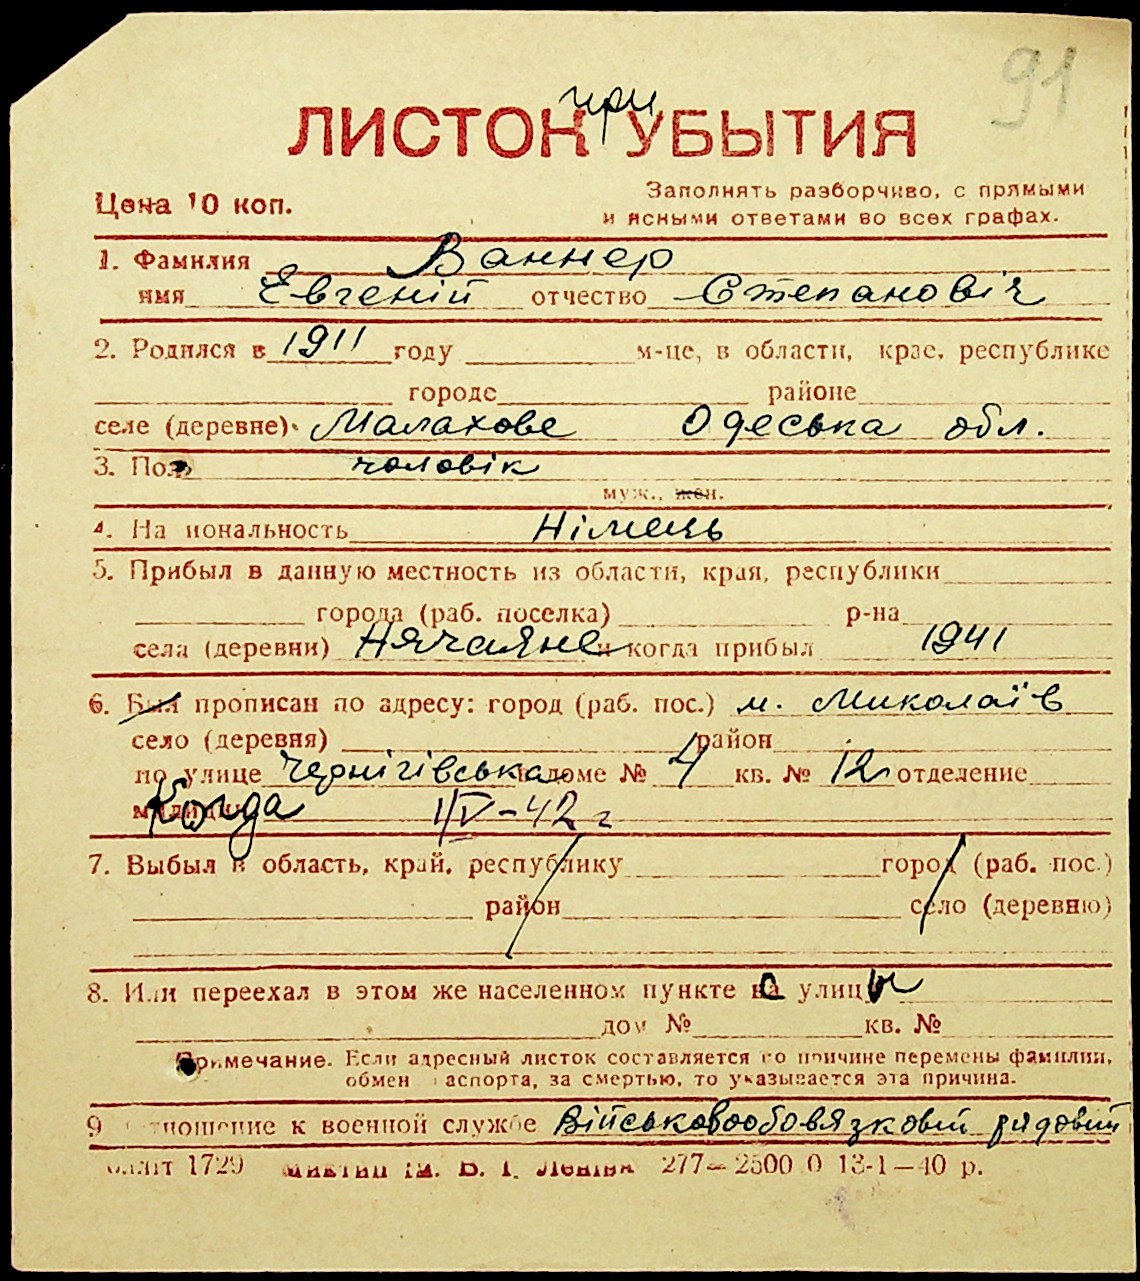 91
при
ЛИСТОК УБЫТИЯ
Цена 10 коп.
Заполнять разборчиво, с прямыми
и ясными ответами во всех графах.
1. Фамилия Ваннер
имя Евгеній отчество Степановіч
2. Родился в 1911 году м-це, в области, крае, республике
городе районе
селе (деревне) Малахове Одеська обл.
3. Пол чоловік
муж., жен.
4. На иональность Німець
5. Прибыл в данную местность из области, края, республики
города (раб. поселка) р-на
села (деревни) Нячаяне и когда прибыл 1941
6. Был прописан по адресу: город (раб. пос.) м. Миколаїв
село (деревня) район
по улице Чернігівська в доме № 4 кв. № 12 отделение
милиции Когда 1/V-42 г
7. Выбыл в область, край, республику город (раб. пос.)
район село (деревню)
8. Или переехал в этом же населенном пункте с улицы
дом № кв. №
Примечание. Если адресный листок составляется по причине перемены фамилии,
обмен аспорта, за смертью, то указывается эта причина.
9 тношение к военной службе Військовообовязковій рядовий
облліт 1729 ім. В. І. Леніна 277—2500 0 13-1—40 р.